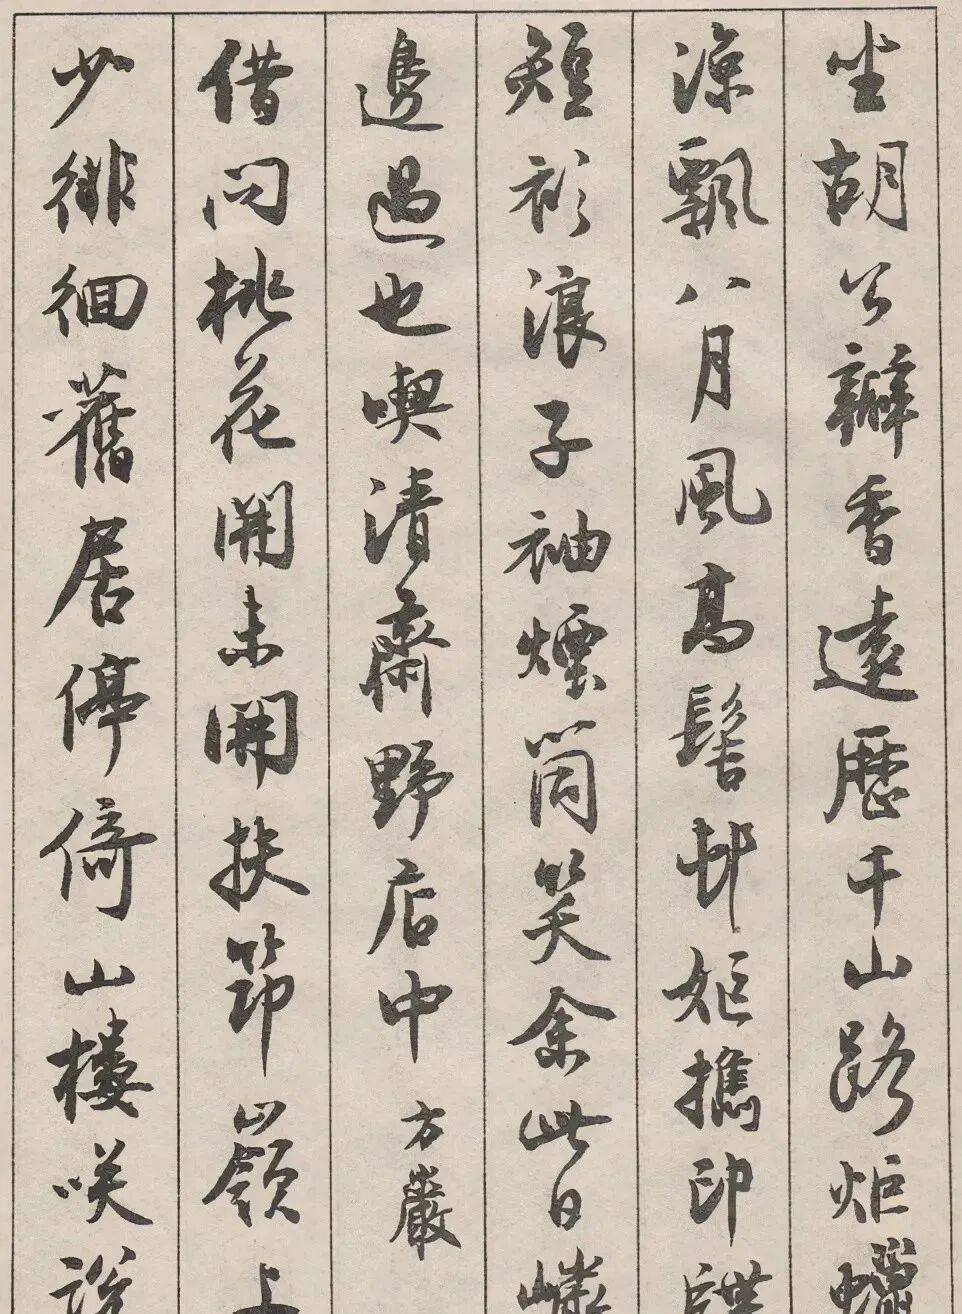 坐胡公瓣香遠歷千山路炬蠟
涼飄八月風高髻邨姬攜印
短衫浪子袖煙筒笑余此日
邊過也喫清齋野店中 方巖
借問桃花開未開扶筇嶺上
少徘徊舊居停倚山樓咲説